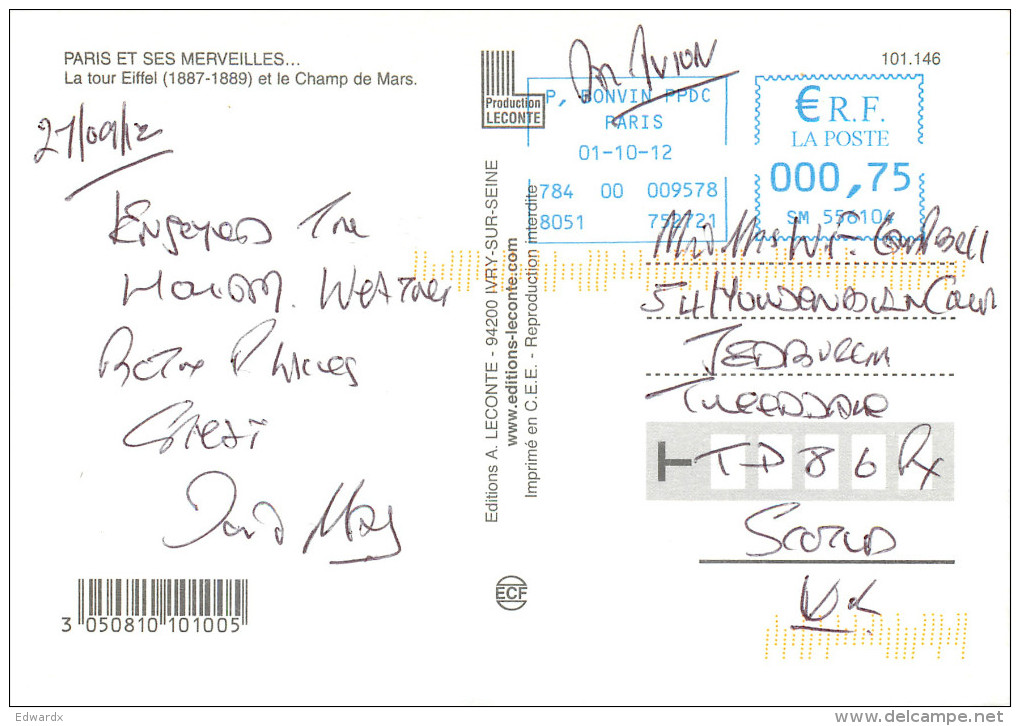 PARIS ET SES MERVEILLES...
La tour Eiffel (1887-1889) et le Champ de Mars.
21/09/12
Enjoyed The
Holiday. Weather
Both
Great
David
3 050810 101005
Production
LECONTE
Editions A. LECONTE - 94200 IVRY-SUR-SEINE
www.editions-leconte.com
Imprimé en C.E.E. - Reproduction interdite
ECF
Par Avion
101.146
P, BONVIN PPDC
PARIS
01-10-12
784 00 009578
8051 752721
€ R.F.
LA POSTE
000,75
SM 55
Mr & Mrs W Campbell
54 Court
JEDBURGH
TWEEDDALE
TD8 6
SCOTLD
UK
Edwardx
www.delcampe.net